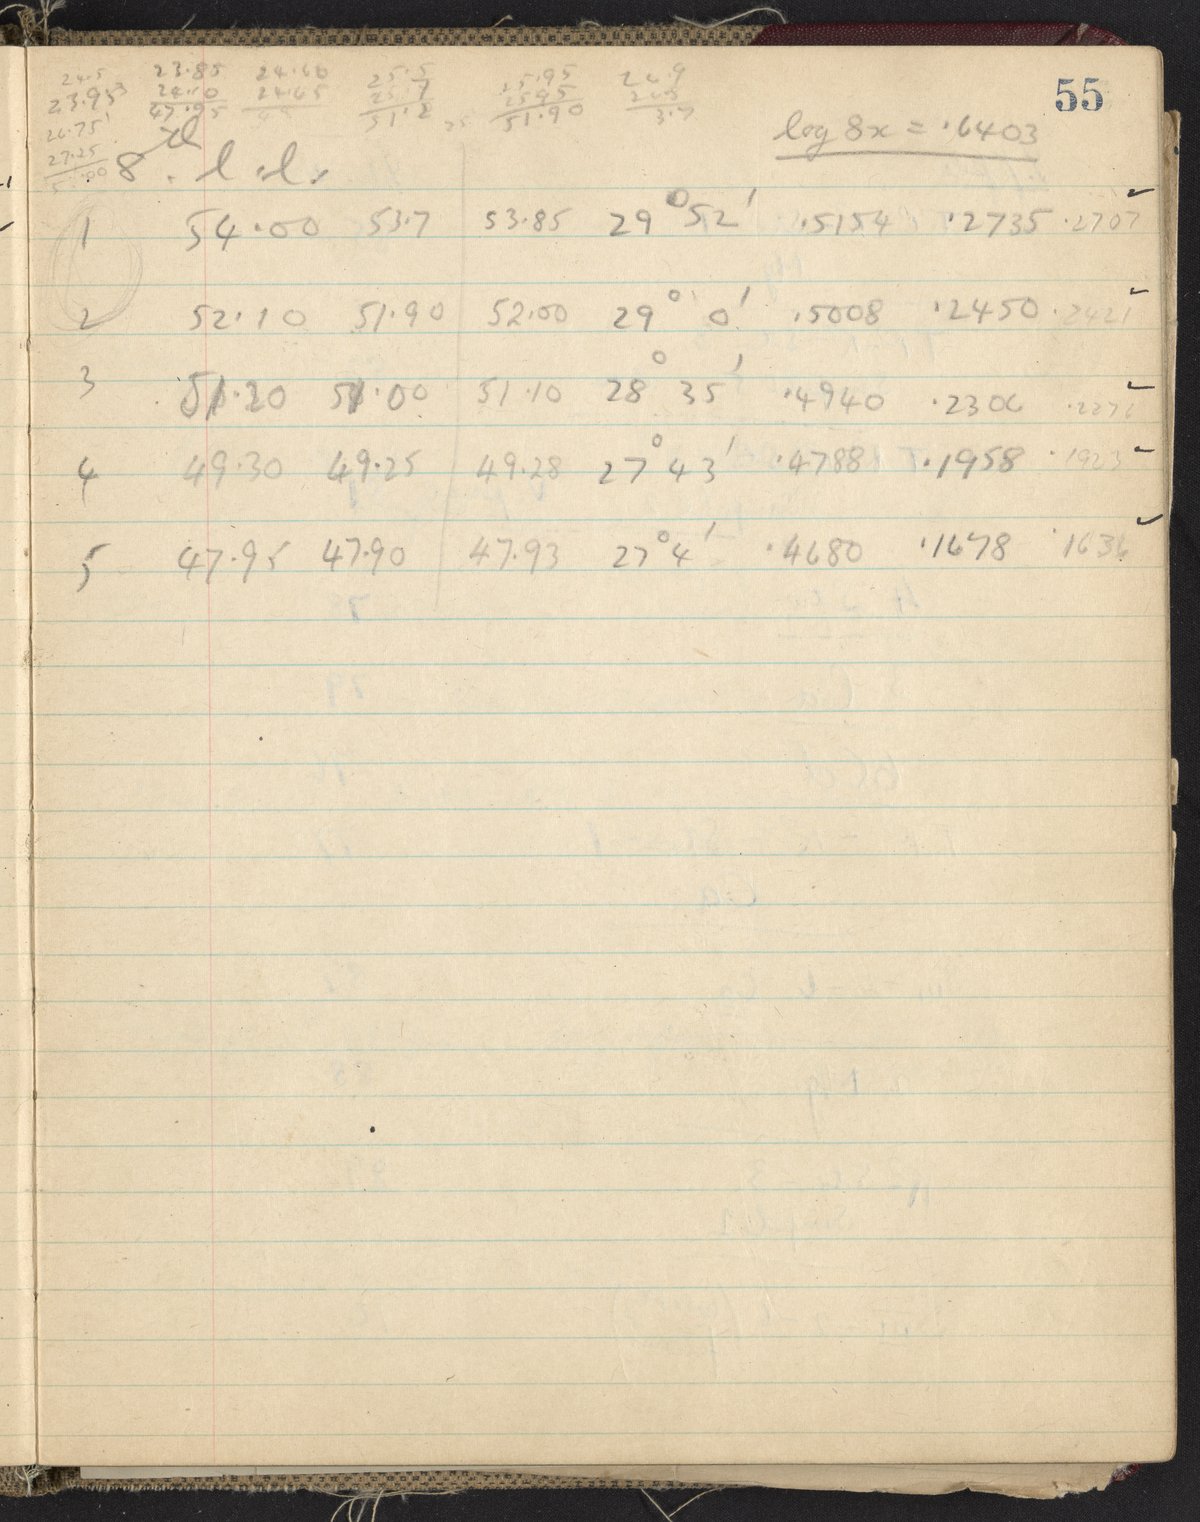 55
24.5 23.85 24.60 25.5 25.95 24.9
23.95 24.10 24.65 25.7 25.95
26.75 47.95 51.2 51.90 3.7
27.25
log 8x = .6403
8 l l
1 54.00 53.7 53.85 29°52' .5154 .2735 .2707
2 52.10 51.90 52.00 29°0' .5008 .2450 .2421
3 51.20 51.00 51.10 28°35' .4940 .2306 .2276
4 49.30 49.25 49.28 27°43' .4788 .1958 .1923
5 47.95 47.90 47.93 27°4' .4680 .1678 .1636